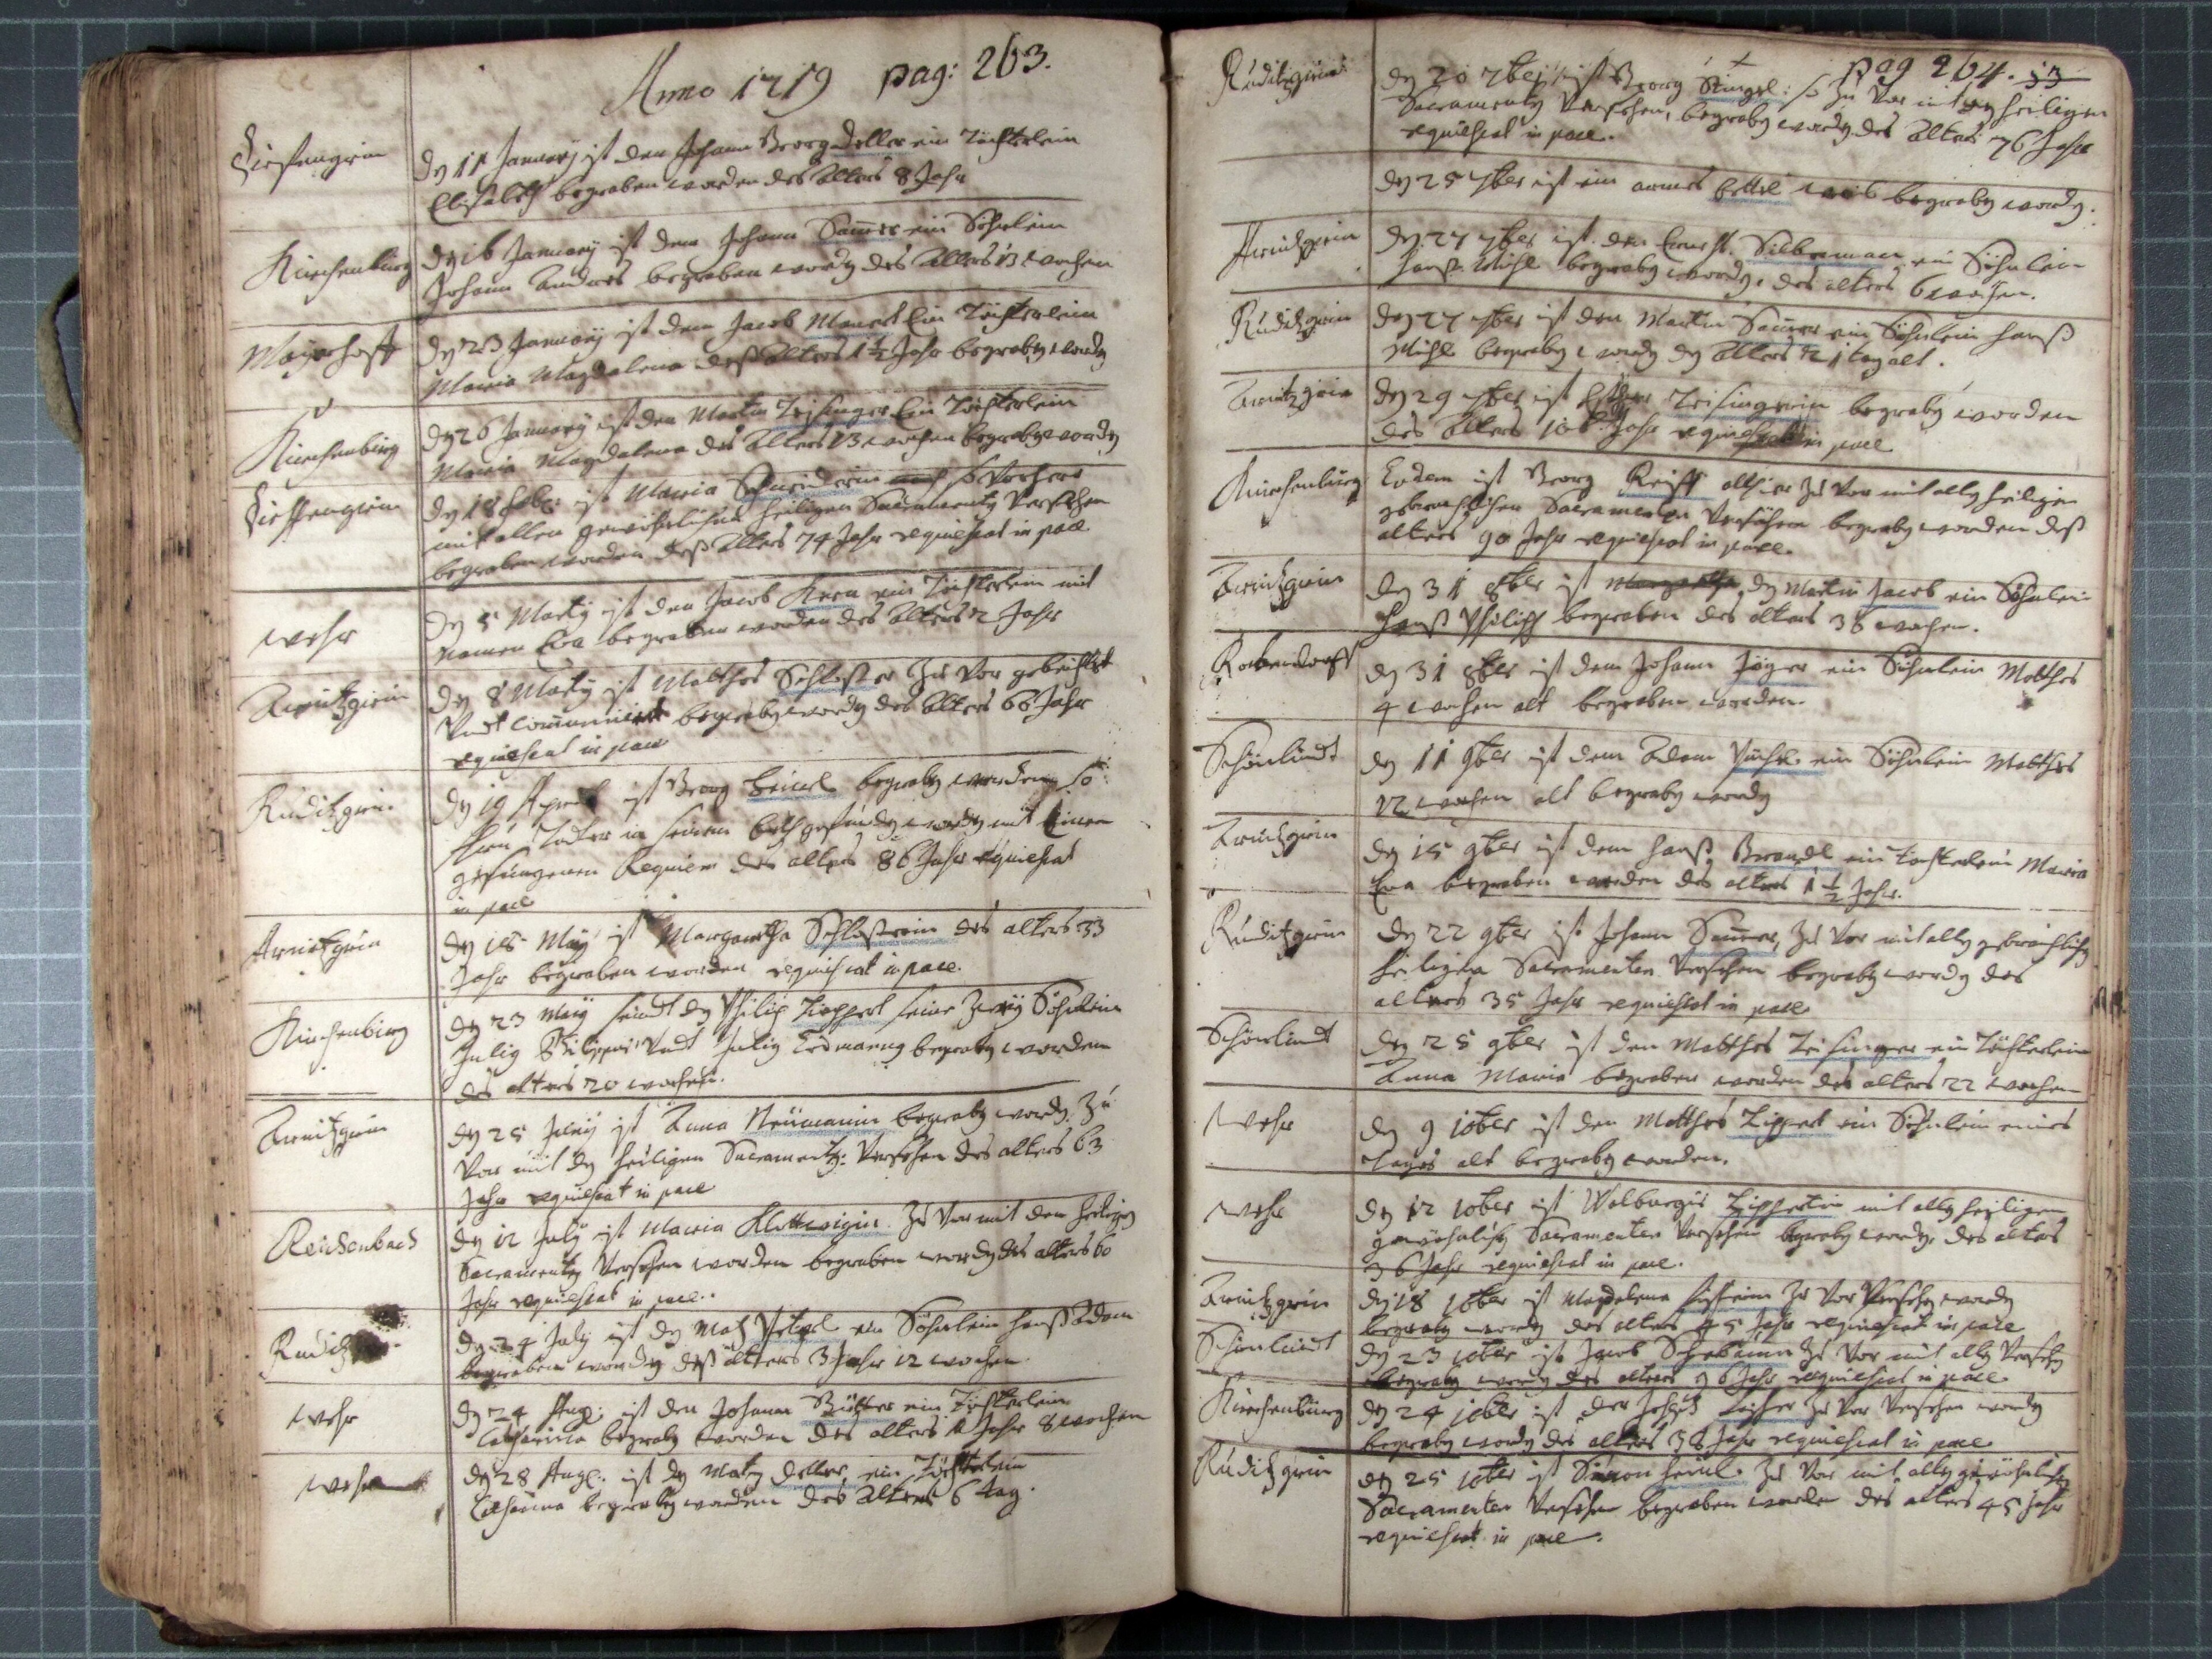 Anno 1719 pag: 263.
den 11 January ist dem Johann Georg Deller ein Töchterlein
Elisabeth begraben worden des Alters 8 Jahr
Kirchenbirg
den 16 January ist dem Johann Saurer ein Söhnlein
Johann Andreas begraben worden des Alters 13 wochen
Mayerhoff
den 23 January ist dem Jacob Ein Töchterlein
Maria Magdalena deß Alters 1 ½ Jahr begraben worden
Kirchenbirg
den 26 January ist dem Martin Zeisinger Ein Töchterlein
Maria Magdalena des Alters 13 wochen begraben worden
den 18 Feb: ist Maria Schneiderin
mit allen gewöhnlichen heiligen Sacramenten Versehen
begraben worden deß Alters 74 Jahr requiescat in pace
wehr
den 5 Marty ist dem Jacob Kern ein Töchterlein mit
Namen Eva begraben worden des Alters 2 Jahr
Arnitzgrün
den 8 Marty ist Matthes Schlosser Zu Vor gebeichtet
Undt communicirt begraben worden des Alters 66 Jahr
requiescat in pace
Ruditzgrün
den 19 April ist Georg Heinl begraben worden so
Todter in seinem beth gefunden worden mit Einem
gesungenen Requiem des alters 86 Jahr requiescat
in pace
Arnitzgrün
den 18 May ist Margaretha Schlosserin des alters 33
Jahr begraben worden requiescat in pace.
Kirchenbirg
den 23 May seindt dem Philip Lippert seine Zwey Söhnlein
Undt begraben worden
des alters 20 wochen.
Arnitzgrün
den 25 Juny ist Anna Neümanin begraben worden Zu
Vor mit den heiligen Sacramenten: Versehen des alters 63
Jahr requiescat in pace
Reichenbach
den 12 July ist Maria Zu Vor mit den heiligen
Sacramenten Versehen worden begraben worden des alters 60
Jahr requiescat in pace..
den 24 July ist dem ein Söhnlein Hanß Adam
begraben worden deß alters 3 Jahr 12 wochen
wehr
den 24 Aug: ist dem Johann ein Töchterlein
Catharina begraben worden des alters 1 Jahr 8 wochen
wehr
den 28 Aug: ist dem Deller ein Töchterlein
Catharina begraben worden des Alters 6 tag.
pag 264. 33
Ruditzgrün
den 20 7bris ist Georg Stingel: so Zu Vor mit den heiligen
Sacramenten Versehen, begraben worden des Alters 76 Jahr
requiescat in pace.
den 25 7ber ist ein armes bettl weib begraben worden.
Arnitzgrün
den 27 7ber ist dem Ernst Silberman ein Söhnlein
Hanß Michl begraben worden, des alters 6 wochen.
Ruditzgrün
den 27 7ber ist dem Martin Saurer ein Söhnlein Hanß
Michl begraben worden des Alters 21 tag alt.
Arnitzgrün
den 29 7ber ist Zeisingerin begraben worden
des Alters Jahr requiescat in pace
Kirchenbürg
Eodem ist Georg Reiff allhier Zu Vor mit allen heiligen
gebreuchlichen Sacramenten Versehen begraben worden deß
alters 90 Jahr requiescat in pace.
Arnitzgrün
den 31 8ber ist dem Martin Jacob ein Söhnlein
Hanß Philipp begraben des alters 38 wochen.
Robendorff
den 31 8ber ist dem Johann Jäger ein Söhnlein Matthes
4 wochen alt begraben worden.
Schönlindt
den 11 9ber ist dem Adam ein Söhnlein Matthes
12 wochen alt begraben worden
Arnitzgrün
den 15 9ber ist dem Hanß Brandl ein Tochterlein Maria
Eva begraben worden des alters 1 ½ Jahr.
Ruditzgrün
den 22 9ber ist Johann Saurer, Zu Vor mit allen gebreuchlichen
heiligen Sacramenten Versehen begraben worden des
alters 35 Jahr requiescat in pace
Schönlindt
den 25 9ber ist dem Matthes Zeisinger ein Töchterlein
Anna Maria begraben worden des alters 22 wochen
Wehr
den 9 10ber ist dem Matthes Lippert ein Söhnlein eines
tages alt begraben worden.
wehr
den 12 10ber ist Walburgis Lippertin mit allen heiligen
gewöhnlichen Sacramenten Versehen begraben worden, des alters
36 Jahr requiescat in pace.
Arnitzgrün
den 18 10ber ist Magdalena Zu Vor Versehen worden
begraben worden des alters 45 Jahr requiescat in pace
Schönlindt
den 23 10ber ist Jacob Zu Vor mit allen Versehen
begraben worden des alters 96 Jahr requiescat in pace
Kirchenbürg
den 24 10ber ist der Zu Vor Versehen worden
begraben worden des alters 38 Jahr requiescat in pace
Ruditzgrün
den 25 10ber ist Simon Heinl. Zu Vor mit allen gewöhnlichen
Sacramenten Versehen begraben worden des alters 45 Jahr
requiescat in pace.